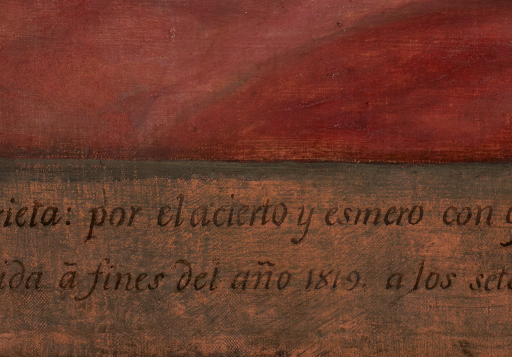 rieta: por el acierto y esmero con
ida â fines del año 1819. a los set